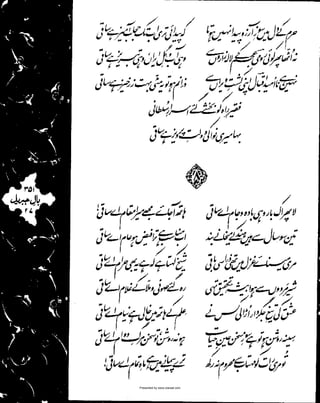 حرم کے دل میں سوزِ آرزو پیدا نہیں ہوتا کہ پیدائی تری اب تک حجاب آمیز ہے ساقی
نہ اٹھا پھر کوئی رومی عجم کے لالہ زاروں سے وہی آب و گلِ ایراں، وہی تبریز ہے ساقی
نہیں ہے ناامید اقبال اپنی کشتِ ویراں سے ذرا نم ہو تو یہ مٹی بہت زرخیز ہے ساقی
فقیرِ راہ کو بخشے گئے اسرارِ سلطانی
بہا میری نوا کی دولتِ پرویز ہے ساقی
۸
۳۵۱
بالِ جبریل
۲۷
لا پھر اک بار وہی بادہ و جام اے ساقی ہاتھ آ جائے مجھے میرا مقام اے ساقی!
تین سو سال سے ہیں ہند کے میخانے بند اب مناسب ہے ترا فیض ہو عام اے ساقی
مری مینائے غزل میں تھی ذرا سی باقی شیخ کہتا ہے کہ ہے یہ بھی حرام اے ساقی
شیر مردوں سے ہوا بیشۂ تحقیق تہی رہ گئے صوفی و ملا کے غلام اے ساقی
عشق کی تیغِ جگردار اڑا لی کس نے علم کے ہاتھ میں خالی ہے نیام اے ساقی
سینہ روشن ہو تو ہے سوزِ سخن عینِ حیات ہو نہ روشن، تو سخن مرگِ دوام اے ساقی
تو مری رات کو مہتاب سے محروم نہ رکھ ترے پیمانے میں ہے ماہِ تمام اے ساقی!